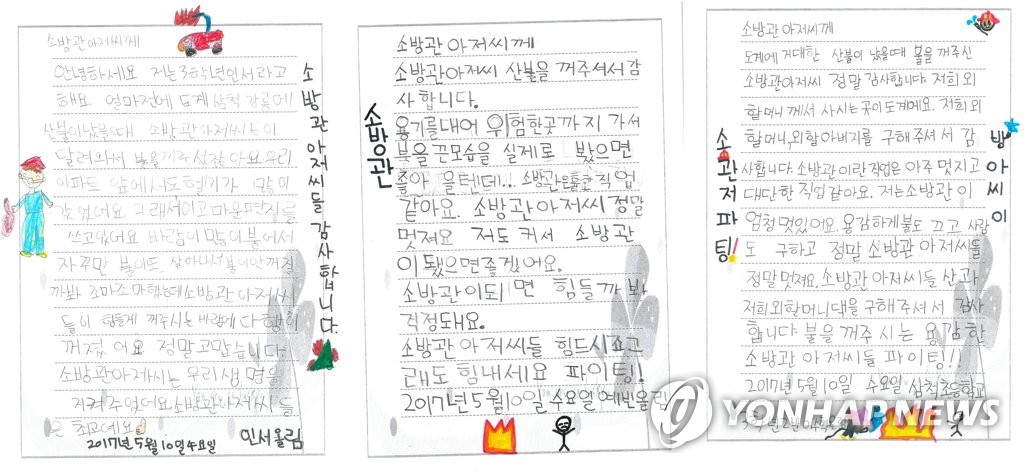 소방관 아저씨께
안녕하세요 저는 3학년 인서라고
해요 얼마전에 도계 삼척 강릉에
산불이 났을때 소방관아저씨들이
달려와서 불을 꺼주셨잖아요 우리
아파트 앞에서도 헬기가
그래서 이 고마운편지를
쓰고있어요 바람이 많이 불어서
자꾸만 불이
까봐 조마조마했는데 소방관 아저씨
들이 힘들게 꺼주시는 바람에 다행히
꺼졌어요 정말고맙습니다.
소방관아저씨는 우리생명을
지켜주었어요 소방관아저씨들
은 최고예요
2017년 5월 10일 수요일
인서올림
소방관아저씨들 감사합니다.
소방관 아저씨께
소방관아저씨 산불을 꺼주셔서 감
사합니다.
용기를내어 위험한곳까지 가서
불을끈모습을 실제로 봤으면
좋아을텐데... 소방관은훌륭한직업
같아요. 소방관아저씨 정말
멋져요 저도 커서 소방관
이 됐으면좋겠어요.
소방관이되면 힘들까봐
걱정돼요.
소방관 아저씨들 힘드시죠그
래도 힘내세요 파이팅!
2017년 5월 10일 수요일 예빈올림
소방관
소방관 아저씨께
도계에 거대한 산불이 났을때 불을 꺼주신
소방관아저씨 정말 감사합니다. 저희 외
할머니께서 사시는곳이 도계예요. 저희 외
할머니,외할아버지를 구해주셔서 감
사합니다. 소방관이란 직업은 아주 멋지고
대단한 직업같아요. 저는소방관이
엄청멋있어요. 용감하게불도 끄고 사람
도 구하고 정말 소방관 아저씨들
정말멋져요. 소방관 아저씨들 산과
저희외할머니댁을 구해주셔서 감사
합니다. 불을 꺼주시는 용감한
소방관 아저씨들 파이팅!!
2017년 5월 10일 수요일 삼척초등학교
3학년 2반
소관저파팅!
방아씨이
YONHAP NEWS